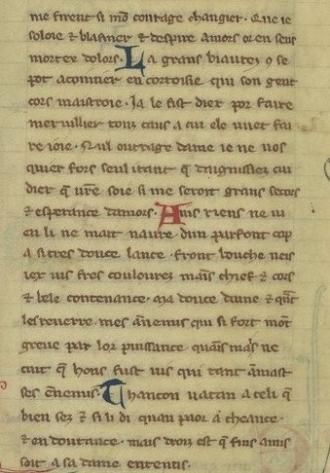 me firent si mō courage changier. Que ie
soloie & blasmer & despire amors or en sens
mortex dolors. La grans biautez q̄ se
pot acointier en cortoisie qui son gent
cors maistroie. Ia le fist diex por faire
merveillier touz caus a cui ele vuet fai
re ioie. Nul outrage dame ie ne vos
quier fors seul itant q̄ daignissiez cui
dier q̄ vr̄e soie si me seront grans secors
& esperance damors. Ains riens ne vi
en li ne mait navre. dun parfont cop
a si tres douce lance. front bouche neis
iex vis fres coulourez mains chief & cors
& bele contenance. Ma douce dame & qn̄t
les reverre. mes anemis qui si fort mōt
greve par lor puissance. quains mais ne
cuit q̄ hons fust vis qui tant amast
ses enemis. Chancon va ten a celi q̄
bien sez & si li di quau paor a cheance.
& en doutance. mais droiz est q̄ fins amis
soit a sa dame ententis.